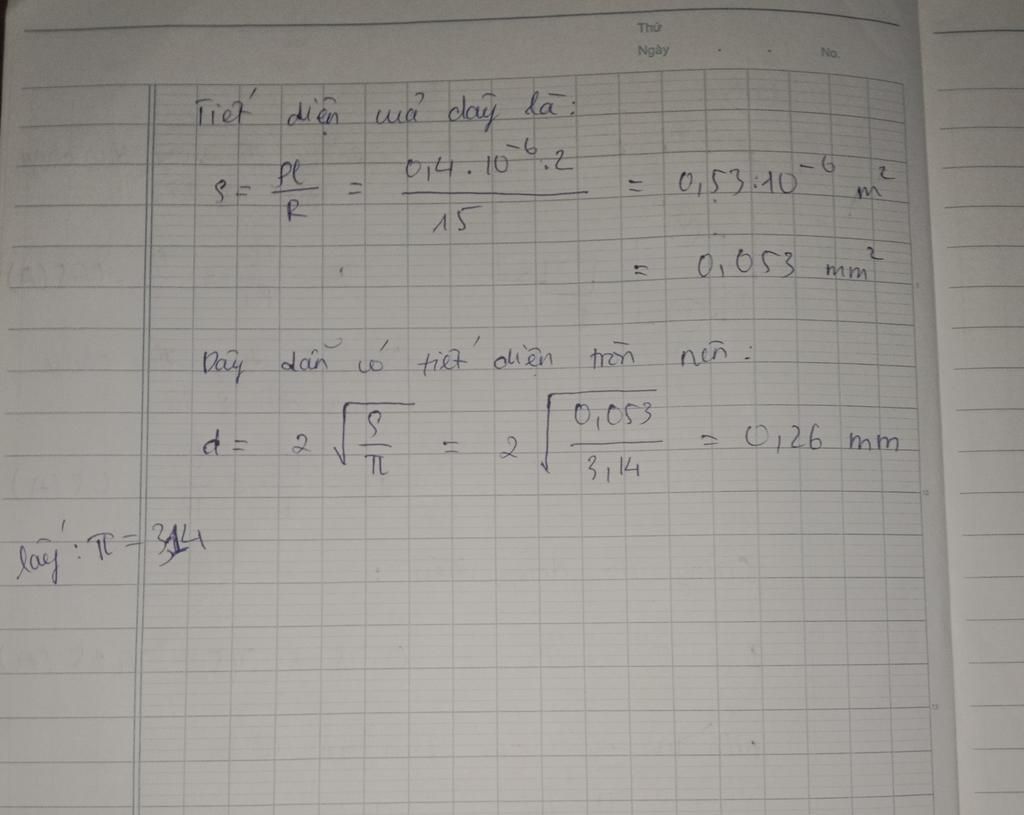 Thứ
Ngày . . No.
Tiết diện của dây là:
S = ρl/R = 0,4 . 10^-6 . 2 / 15 = 0,53.10^-6 m²
= 0,053 mm²
Dây dẫn có tiết diện tròn nên:
d = 2 √(S/π) = 2 √(0,053/3,14) = 0,26 mm
lấy: π = 3,14